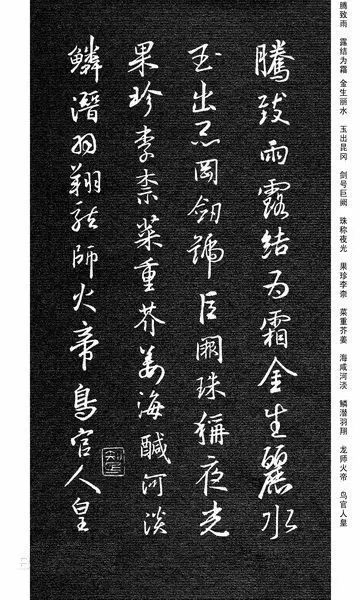 腾致雨 露结为霜 金生丽水 玉出昆冈 剑号巨阙 珠称夜光 果珍李奈 菜重芥姜 海咸河淡 鳞潜羽翔 龙师火帝 鸟官人皇
騰致雨露结为霜金生麗水
玉出昆岡劒號巨闕珠稱夜光
果珍李柰菜重芥姜海醎河淡
鱗潛羽翔龍師火帝鳥官人皇